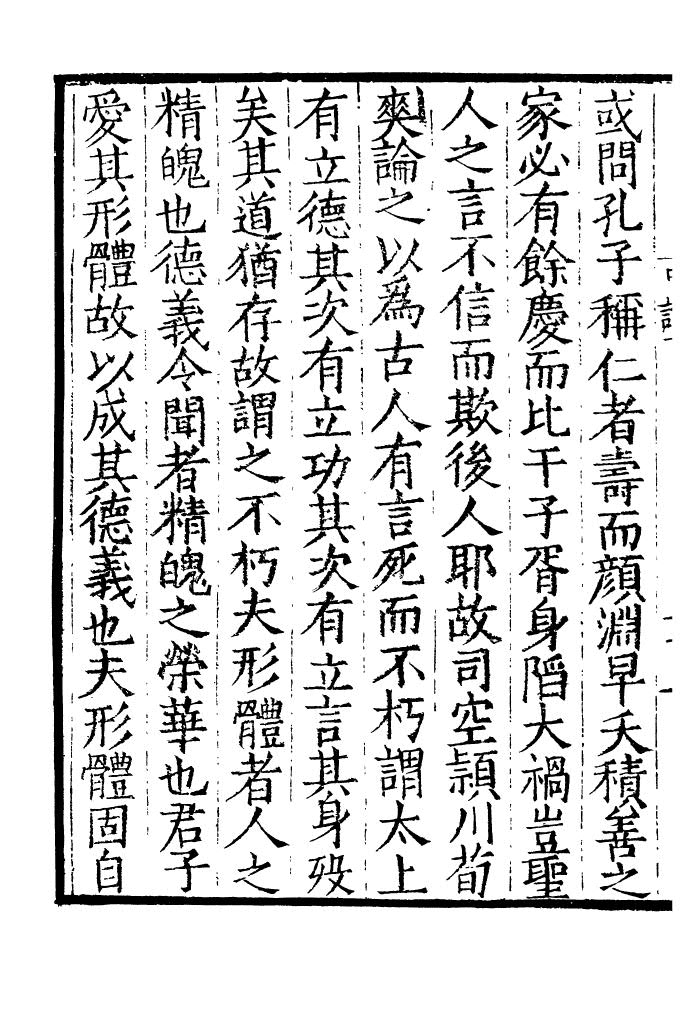 或問孔子稱仁者壽而顔淵早夭積善之
家必有餘慶而比干子胥身陷大禍豈聖
人之言不信而欺後人耶故司空潁川荀
爽論之以爲古人有言死而不朽謂太上
有立德其次有立功其次有立言其身殁
矣其道猶存故謂之不朽夫形體者人之
精魄也德義令聞者精魄之榮華也君子
愛其形體故以成其德義也夫形體固自